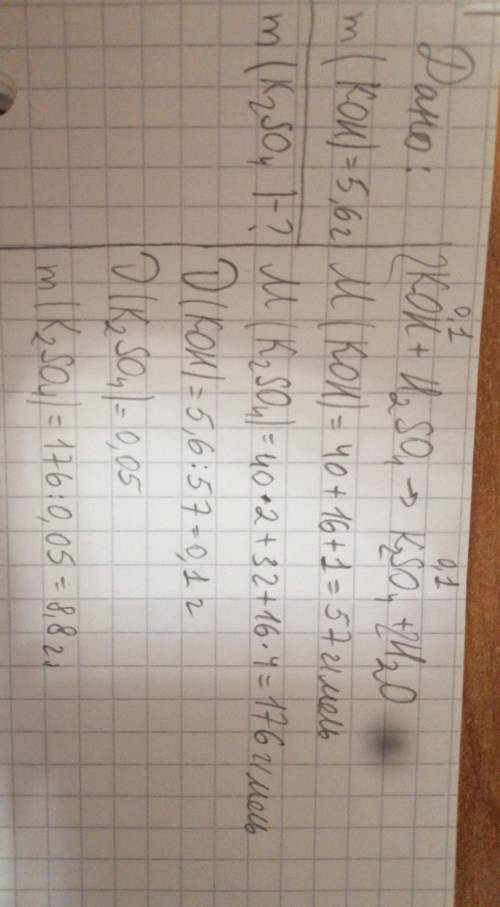 Дано:
m(KOH)=5,6г
m(K₂SO₄)-?
0,1 0,1
2KOH + H₂SO₄ → K₂SO₄ + 2H₂O
M(KOH)=40+16+1=57г/моль
M(K₂SO₄)=40·2+32+16·4=176г/моль
ν(KOH)=5,6:57=0,1г
ν(K₂SO₄)=0,05
m(K₂SO₄)=176:0,05=8,8г